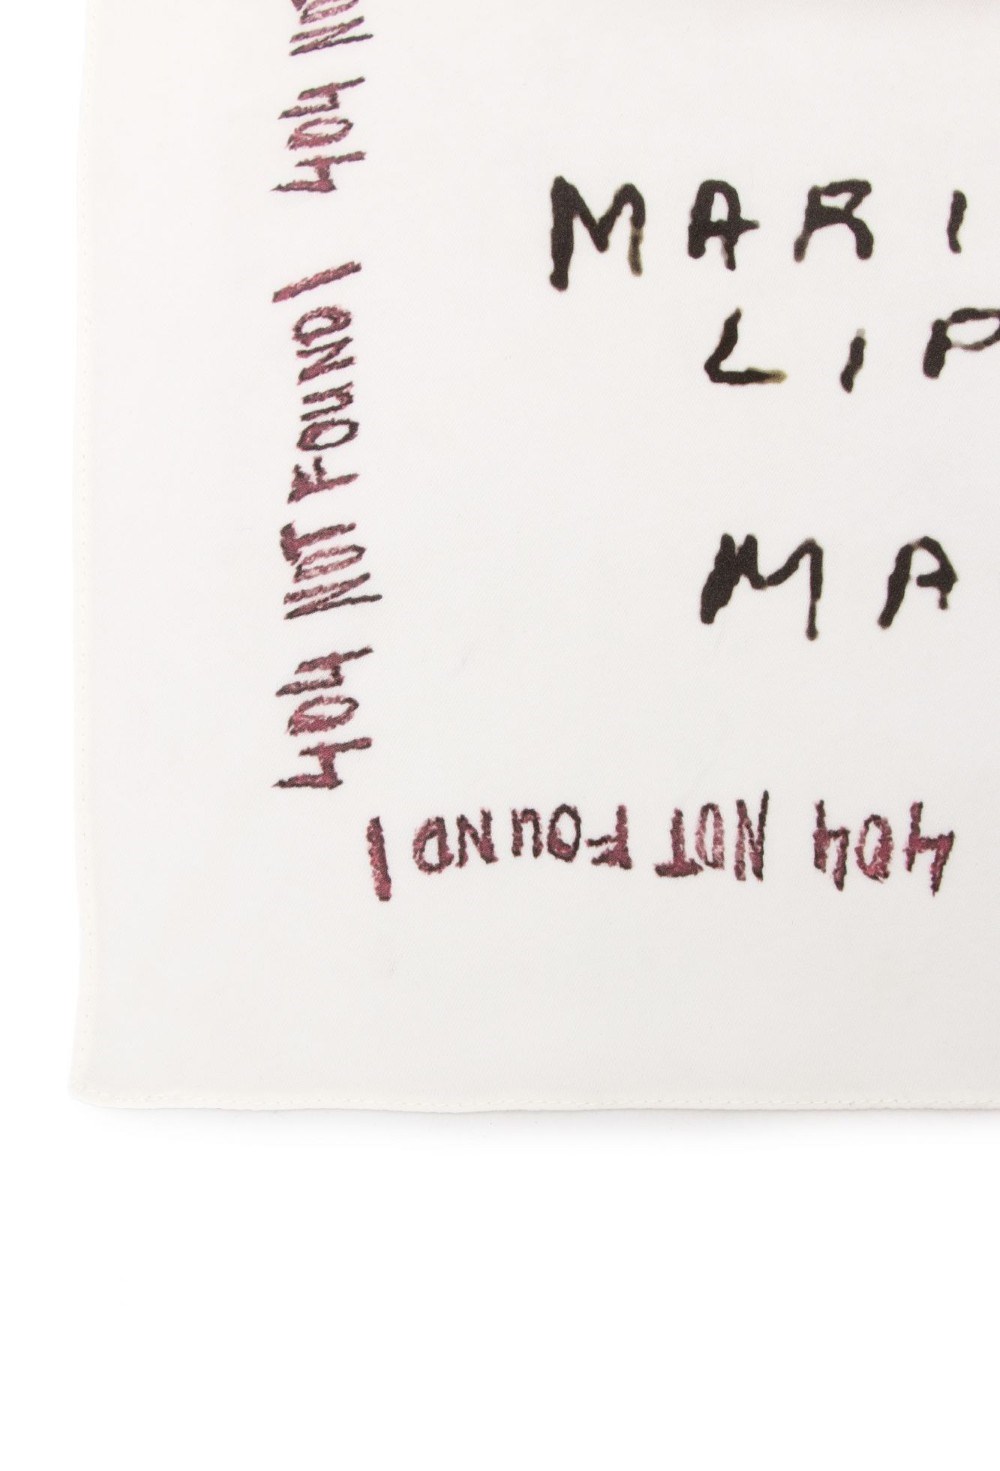 MARI
LIP
MA
404 NO
404 NOT FOUND!
404 NOT FOUND!